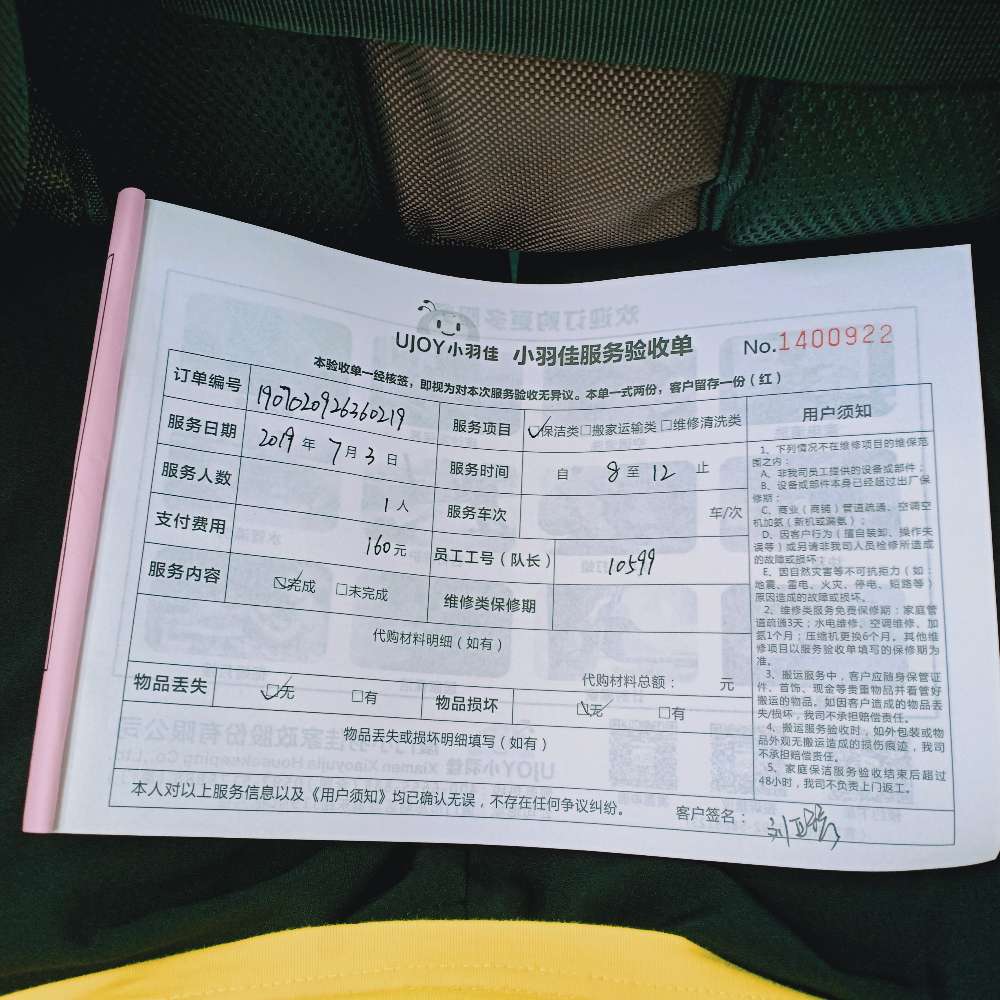 UJOY小羽佳 小羽佳服务验收单 No.1400922
本验收单一经核签，即视为对本次服务验收无异议。本单一式两份，客户留存一份（红）
订单编号 1907020926360219 服务项目 保洁类 搬家运输类 维修清洗类
服务日期 2019 年 7 月 3 日 服务时间 自 8 至 12 止
服务人数 1 人 服务车次 车/次
支付费用 160 元 员工工号（队长） 10599
服务内容 完成 未完成 维修类保修期
代购材料明细（如有）
代购材料总额： 元
物品丢失 无 有 物品损坏 无 有
物品丢失或损坏明细填写（如有）
本人对以上服务信息以及《用户须知》均已确认无误，不存在任何争议纠纷。
客户签名：
用户须知
1、下列情况不在维修项目的维保范
围之内：
A、非我司员工提供的设备或部件；
B、设备或部件本身已经超过出厂保
修期；
C、商业（商铺）管道疏通、空调空
机加氨（新机或漏氨）；
D、因客户行为（擅自装卸、操作失
误等）或另请非我司人员检修所造成
的故障或损坏；
E、因自然灾害等不可抗拒力（如：
地震、雷电、火灾、停电、短路等）
原因造成的故障或损坏。
2、维修类服务免费保修期：家庭管
道疏通3天；水电维修、空调维修、加
氨1个月；压缩机更换6个月。其他维
修项目以服务验收单填写的保修期为
准。
3、搬运服务中，客户应随身保管证
件、首饰、现金等贵重物品并看管好
搬运的物品。如因客户造成的物品丢
失/损坏，我司不承担赔偿责任。
4、搬运服务验收时，如外包装或物
品外观无搬运造成的损伤痕迹，我司
不承担赔偿责任。
5、家庭保洁服务验收结束后超过
48小时，我司不负责上门返工。